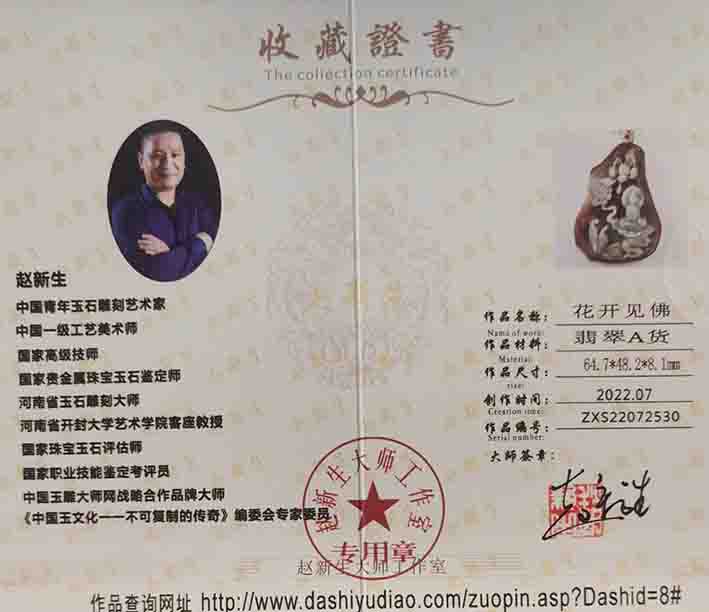 收藏證書
The collection certificate
赵新生
中国青年玉石雕刻艺术家
中国一级工艺美术师
国家高级技师
国家贵金属珠宝玉石鉴定师
河南省玉石雕刻大师
河南省开封大学艺术学院客座教授
国家珠宝玉石评估师
国家职业技能鉴定考评员
中国玉雕大师网战略合作品牌大师
《中国玉文化——不可复制的传奇》编委会专家委员
作品名称： 花开见佛
Name of work:
作品材料： 翡翠A货
Material:
作品尺寸： 64.7*48.2*8.1mm
size:
创作时间： 2022.07
Creation time:
作品编号： ZXS22072530
Serial number:
大师签章：
赵新生
赵新生大师工作室
专用章
赵新生大师工作室
作品查询网址 http://www.dashiyudiao.com/zuopin.asp?Dashid=8#